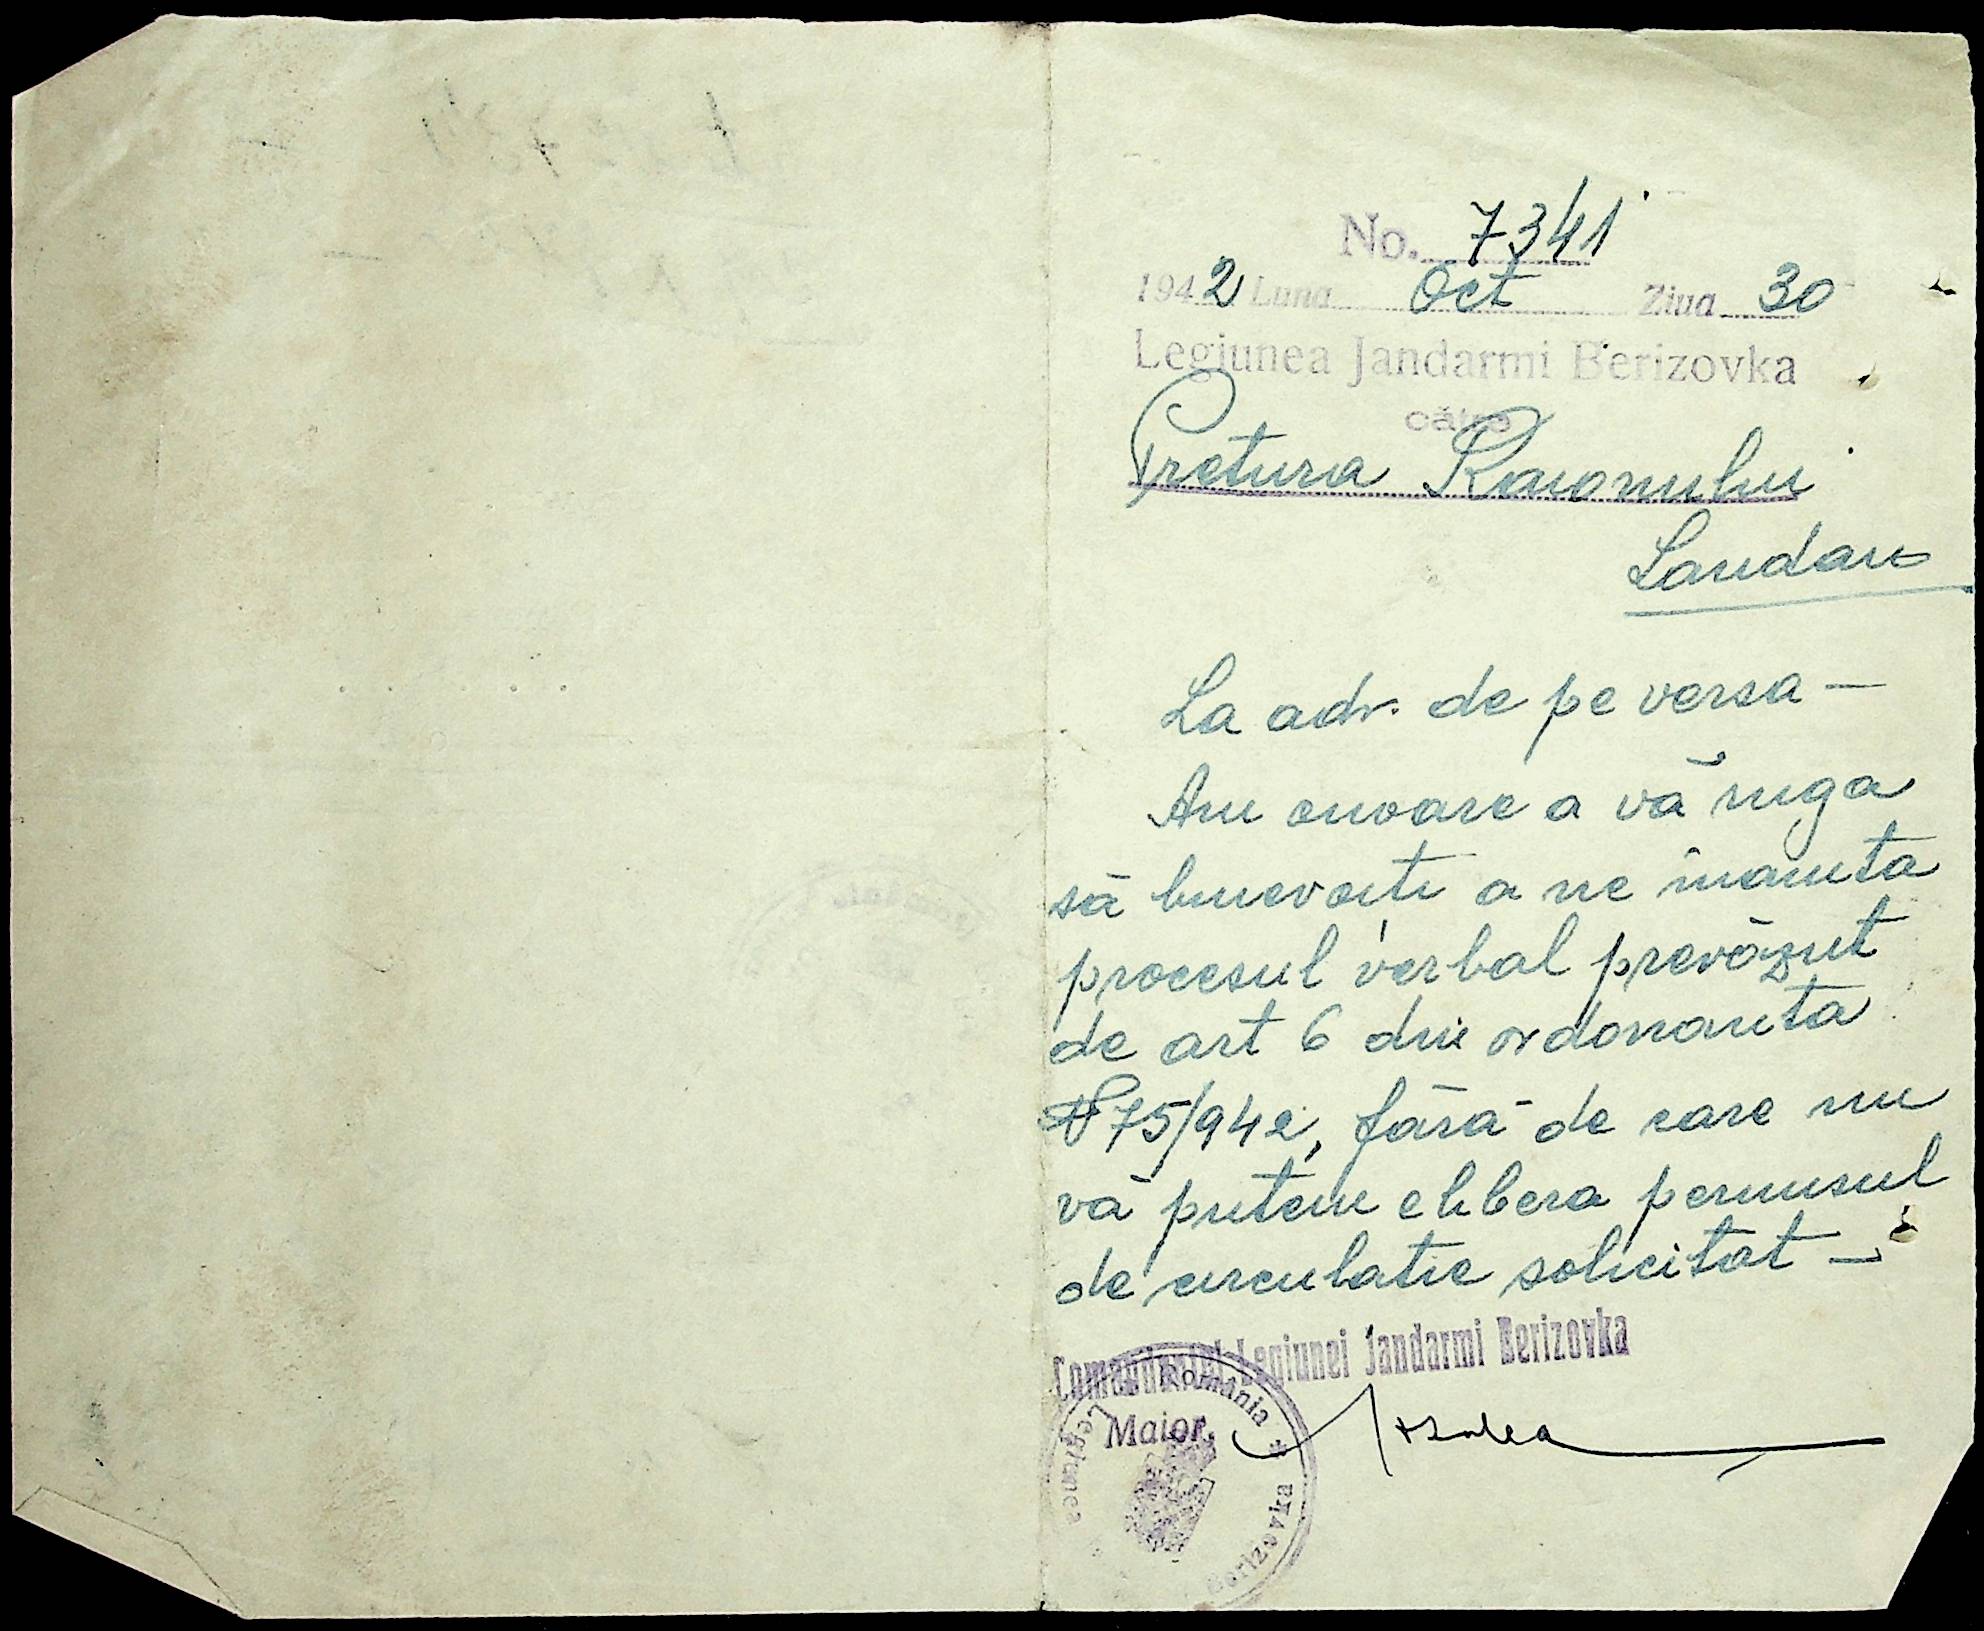 No. 7341
1942 Luna Oct Ziua 30
Legiunea Jandarmi Berizovka
către
Pretura Raionului
Landau
La adr. de pe versa —
Am onoare a vă ruga
să binevoiti a ne înainta
procesul verbal prevăzut
de art 6 din ordonanta
№ 75/942, fără de care nu
vă putem elibera permisul
de circulatie solicitat —
Comandantul Legiunei Jandarmi Berizovka
Maior,
România * Legiunea Berizovka